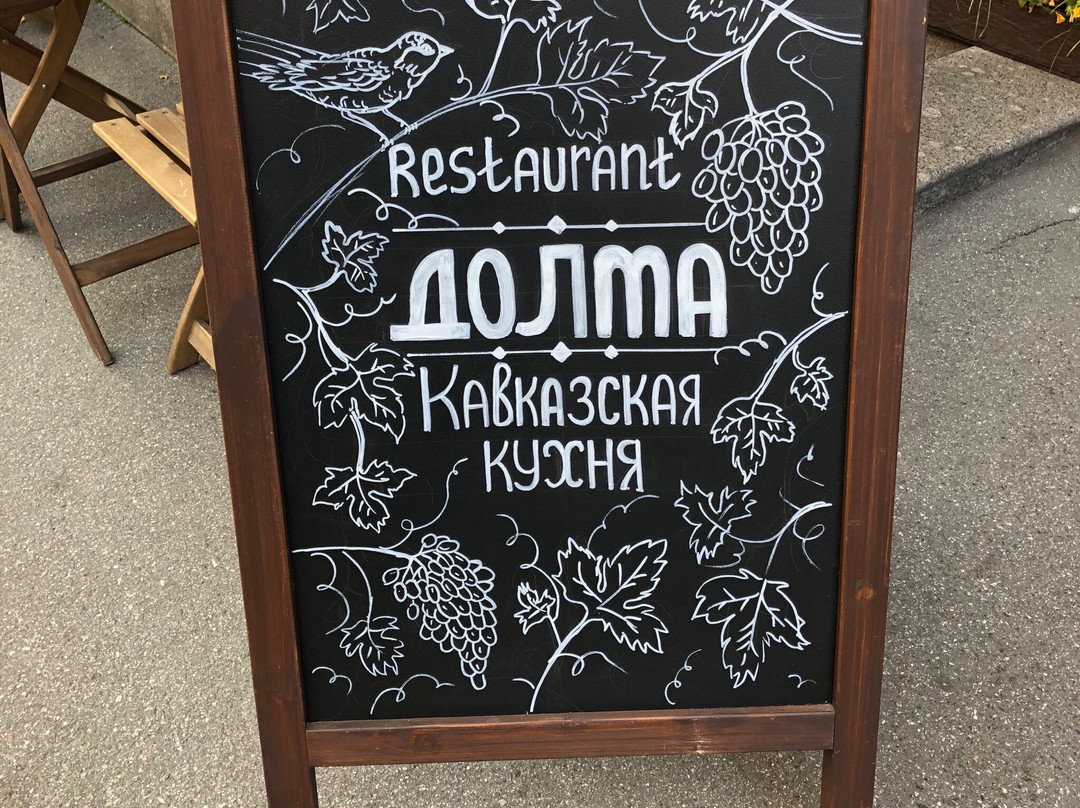 Restaurant
ДОЛМА
Кавказская
кухня